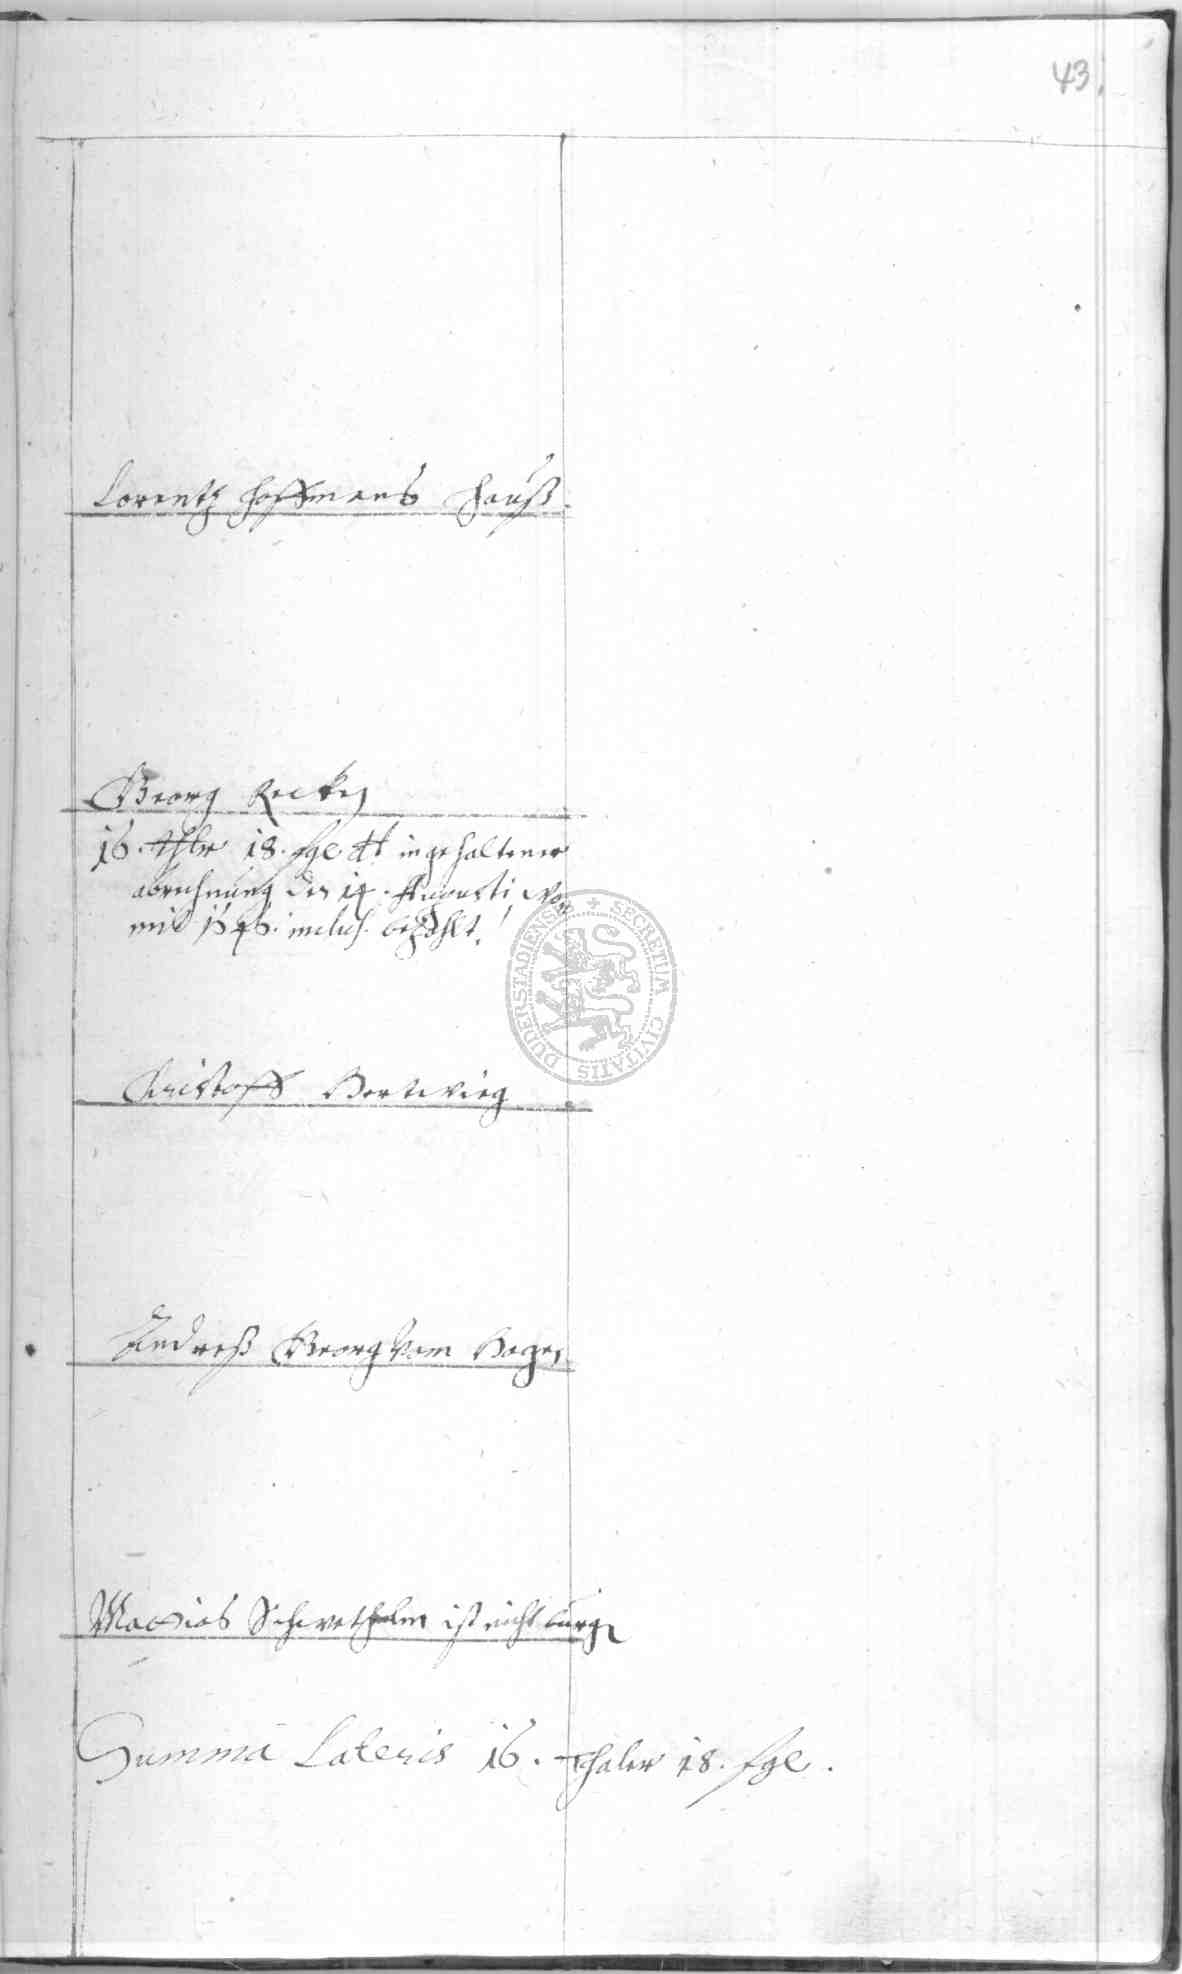 43.
Lorentz Hoffmans Hauß.
Georg Recke
16. Thlr 18. sgl in gehaltener
abrechnung den 14. Augusti
mit 1646. inclus. bezahlt.
SECRETUM CIVITATIS DUDERSTADIENSE
Christoff Hartwieg
Andreß Georg Vom Hagen
Mattias ist nicht
Summa Lateris 16. Thaler 18. sgl.